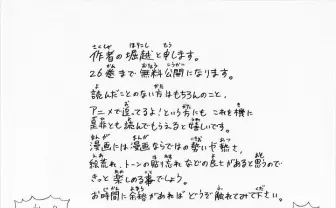 作者の堀越と申します。
26巻まで無料公開になります。
読んだことのない方はもちろんのこと、
アニメで追ってるよ！という方にも これを機に
是非とも読んでもらえると嬉しいです。
漫画には漫画ならではの勢いや稚さ、
絵荒れ、トーンの貼り忘れ などの良さがあると思うので
きっと楽しめる事でしょう。
お時間に余裕があれば どうぞ触れてみて下さい。